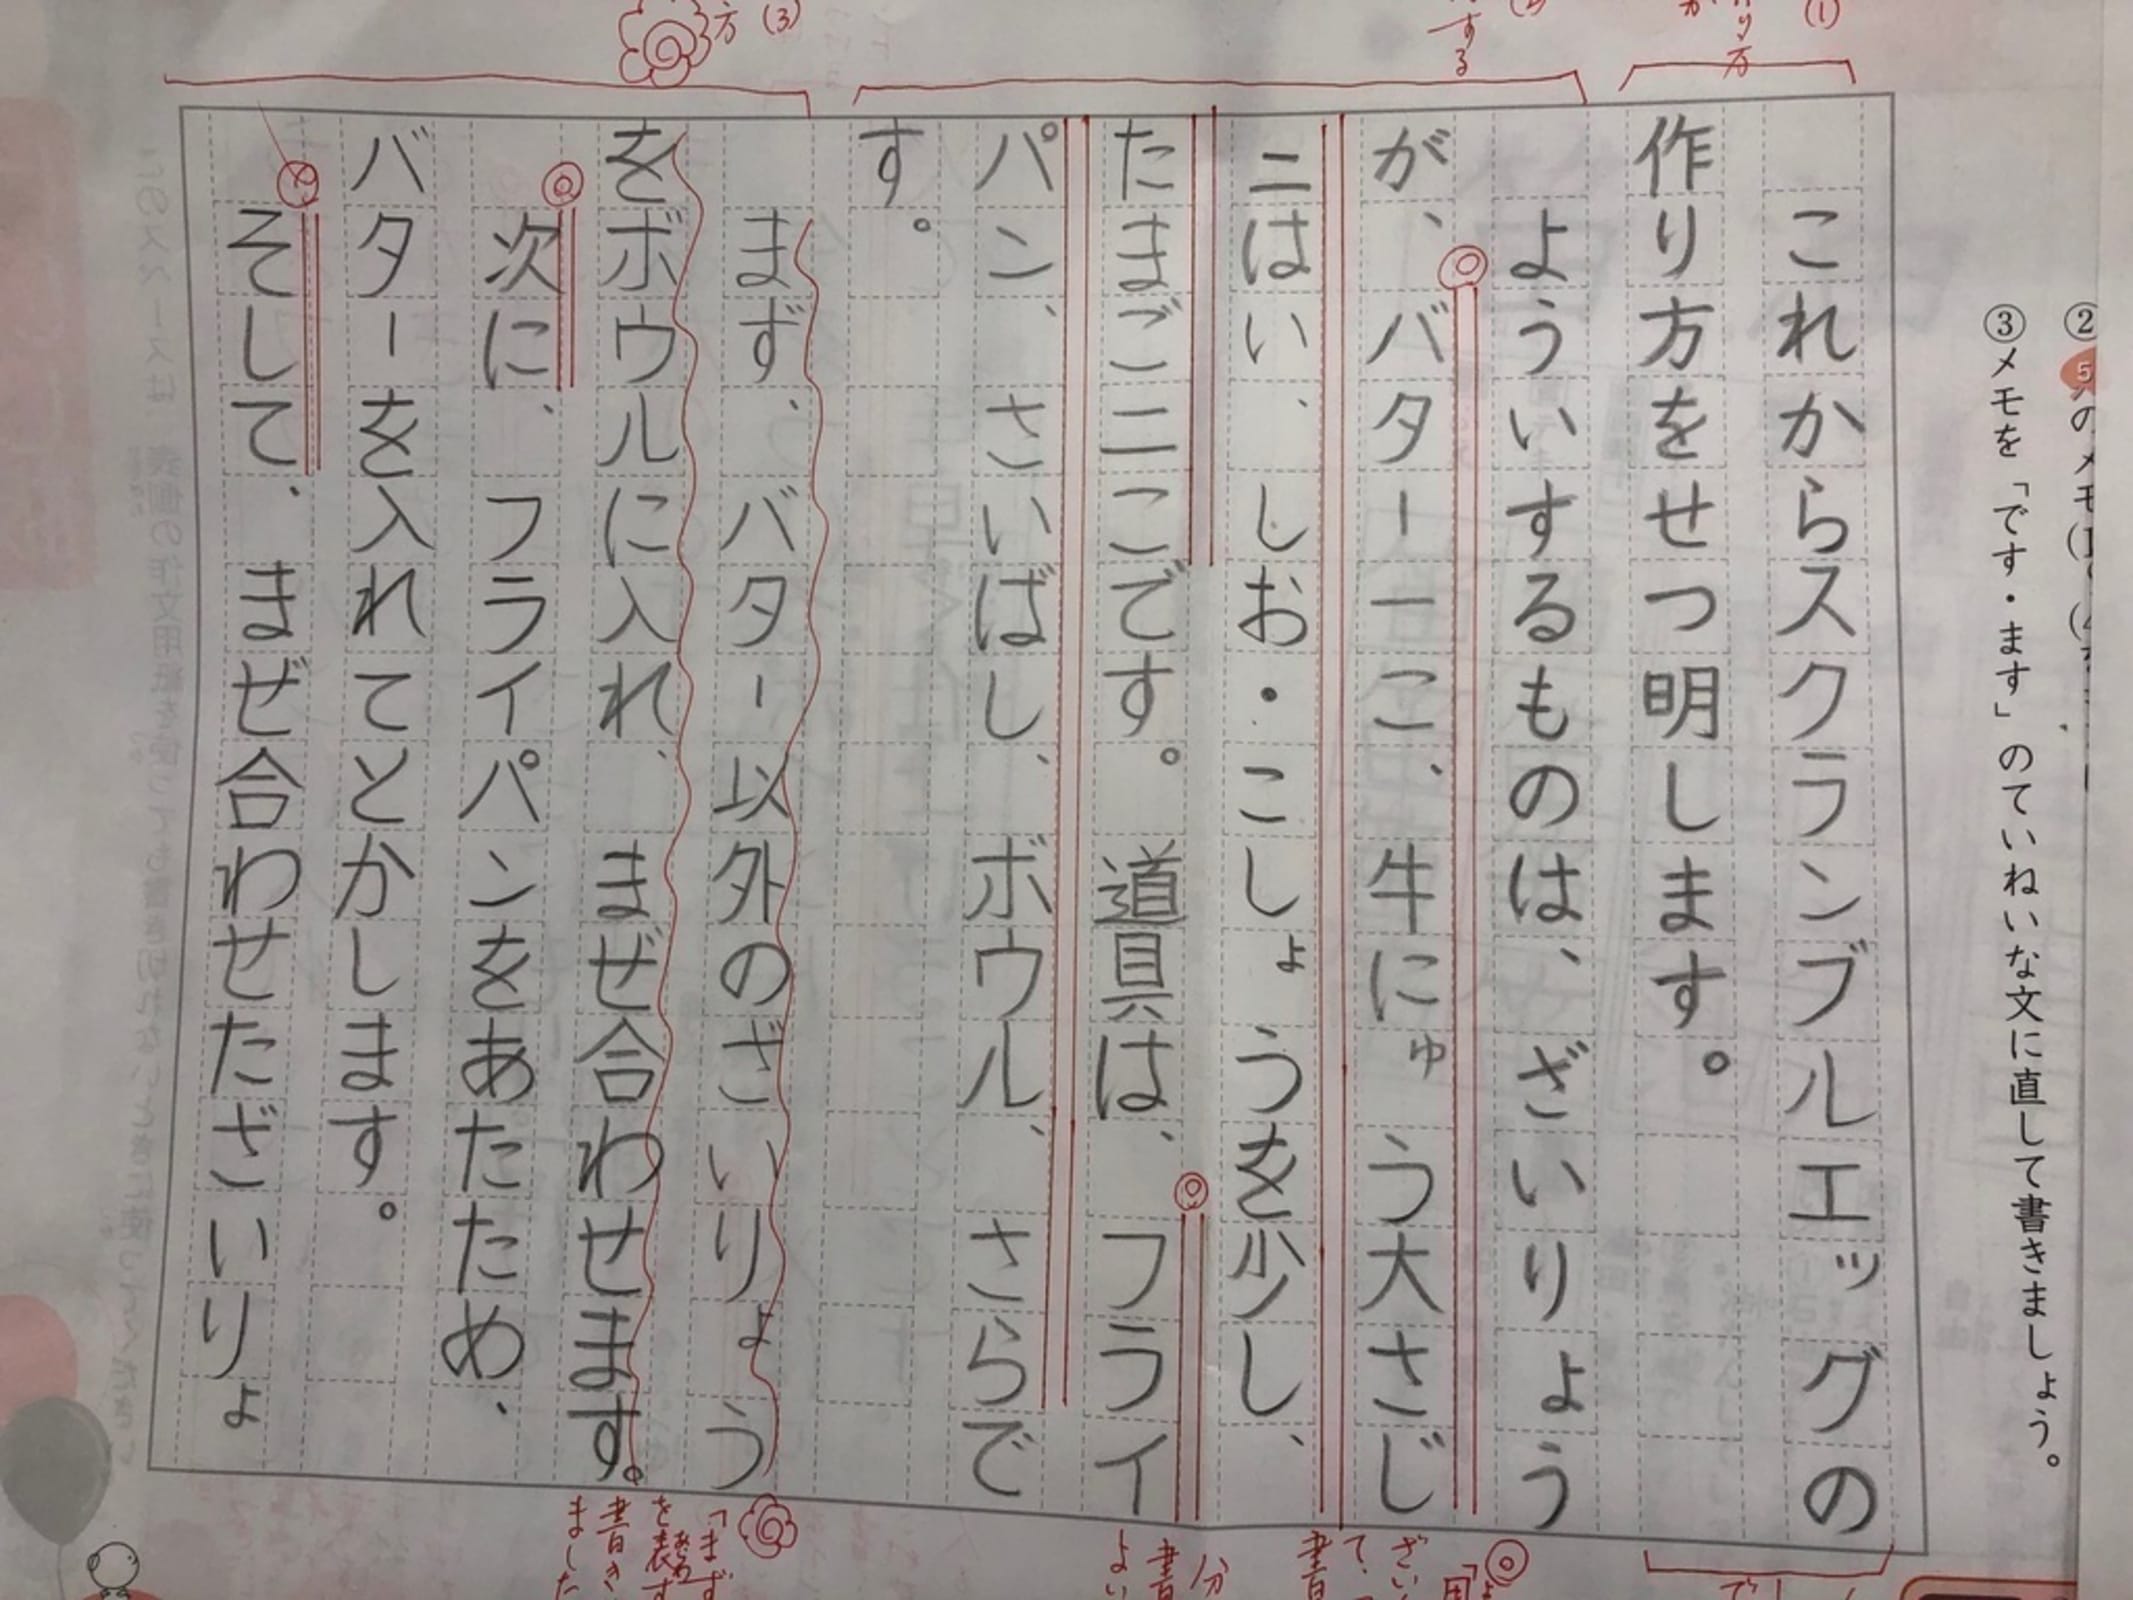 (1)
(3)
方
する
② 5 のメモ
③メモを「です・ます」のていねいな文に直して書きましょう。
これからスクランブルエッグの
作り方をせつ明します。
よういするものは、ざいりょう
が、バター一こ、牛にゅう大さじ
二はい、しお・こしょうを少し、
たまご二こです。道具は、フライ
パン、さいばし、ボウル、さらで
す。
まず、バター以外のざいりょう
をボウルに入れ、まぜ合わせます。
次に、フライパンをあたため、
バターを入れてとかします。
そして、まぜ合わせたざいりょ
ざい
て、
書
分
書
よい
「まず
を表す
書き
ました